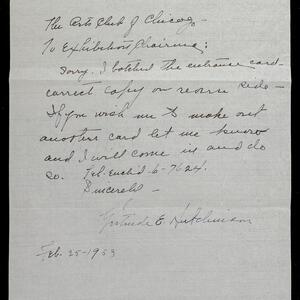 The Arts Club of Chicago -
To Exhibition Chairman;
Sorry. I botched the entrance card -
correct copy on reverse side -
If you wish me to make out
another card let me know
and I will come in and do
so. Tel. Euclid-6-7624.
Sincerely -
Gertrude E. Hutchinson
Feb. 25-1953